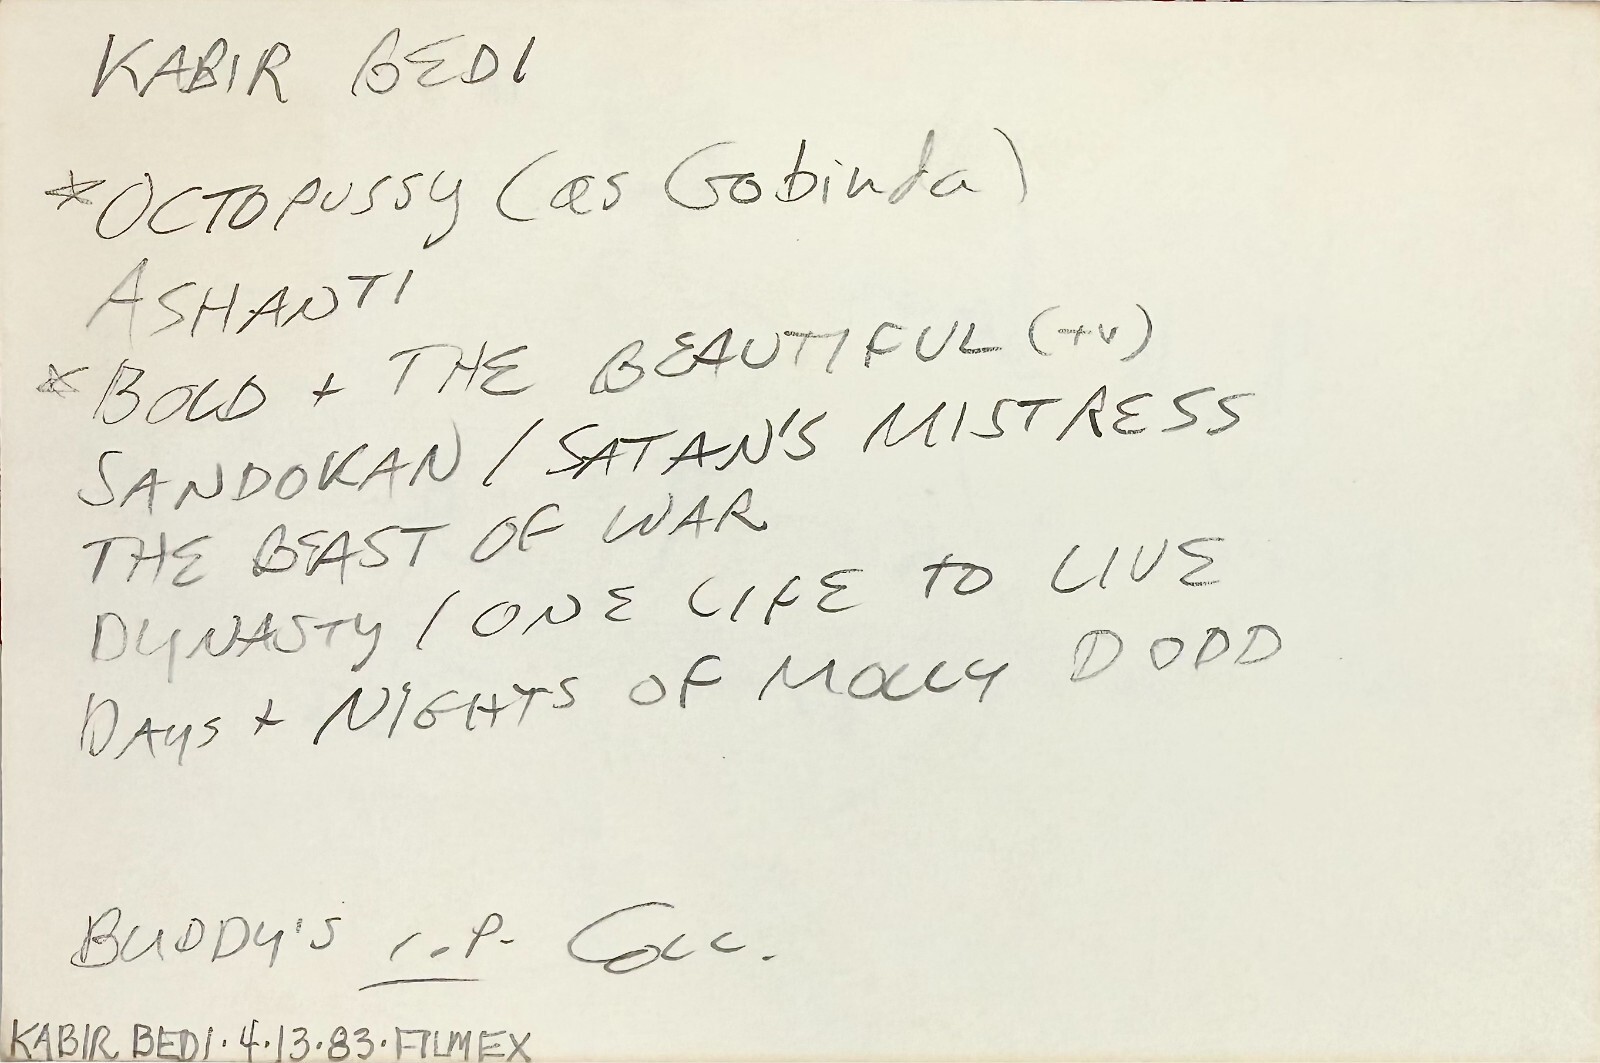 KABIR BEDI
*OCTOPUSSY (as Gobinda)
ASHANTI
*BOLD + THE BEAUTIFUL (tv)
SANDOKAN / SATAN'S MISTRESS
THE BEAST OF WAR
DYNASTY / ONE LIFE to LIVE
DAys + NIGHTS OF MOLLY DODD
BUDDY'S i.p. Coll.
KABIR BEDI·4·13·83·FILMEX